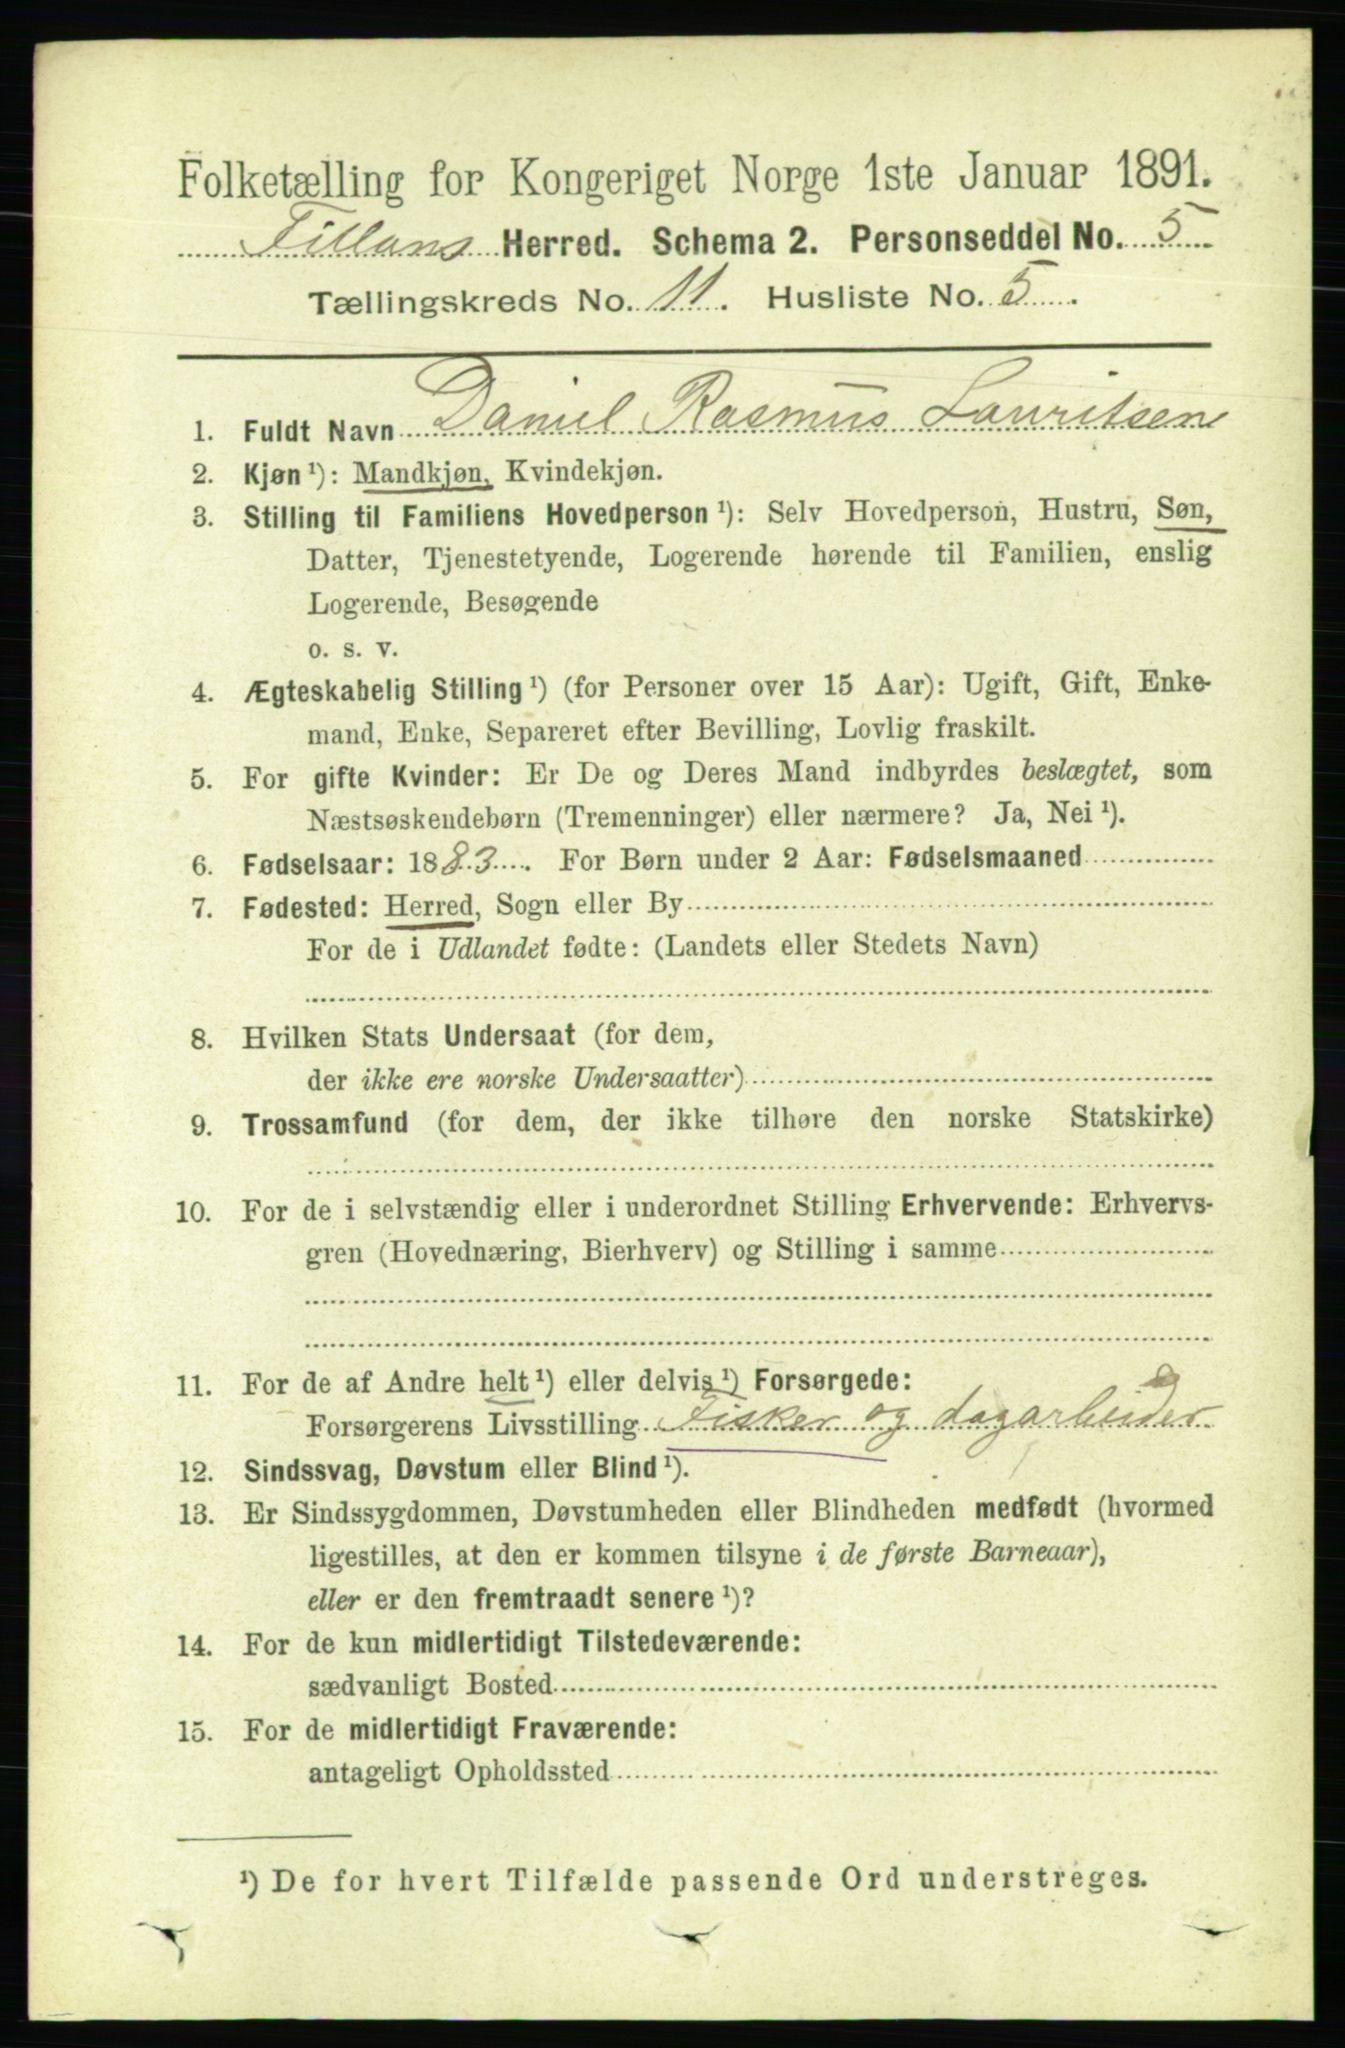 Folketælling for Kongeriget Norge 1ste Januar 1891.
Fillans Herred. Schema 2. Personseddel No. 5
Tællingskreds No. 11. Husliste No. 5.
1. Fuldt Navn Daniel Rasmus Lauritsen
2. Kjøn ¹): Mandkjøn, Kvindekjøn.
3. Stilling til Familiens Hovedperson ¹): Selv Hovedperson, Hustru, Søn,
Datter, Tjenestetyende, Logerende hørende til Familien, enslig
Logerende, Besøgende
o. s. v.
4. Ægteskabelig Stilling ¹) (for Personer over 15 Aar): Ugift, Gift, Enke-
mand, Enke, Separeret efter Bevilling, Lovlig fraskilt.
5. For gifte Kvinder: Er De og Deres Mand indbyrdes beslægtet, som
Næstsøskendebørn (Tremenninger) eller nærmere? Ja, Nei ¹).
6. Fødselsaar: 1883. For Børn under 2 Aar: Fødselsmaaned
7. Fødested: Herred, Sogn eller By
For de i Udlandet fødte: (Landets eller Stedets Navn)
8. Hvilken Stats Undersaat (for dem,
der ikke ere norske Undersaatter)
9. Trossamfund (for dem, der ikke tilhøre den norske Statskirke)
10. For de i selvstændig eller i underordnet Stilling Erhvervende: Erhvervs-
gren (Hovednæring, Bierhverv) og Stilling i samme
11. For de af Andre helt ¹) eller delvis ¹) Forsørgede:
Forsørgerens Livsstilling Fisker og dagarbeider
12. Sindssvag, Døvstum eller Blind ¹).
13. Er Sindssygdommen, Døvstumheden eller Blindheden medfødt (hvormed
ligestilles, at den er kommen tilsyne i de første Barneaar),
eller er den fremtraadt senere ¹)?
14. For de kun midlertidigt Tilstedeværende:
sædvanligt Bosted
15. For de midlertidigt Fraværende:
antageligt Opholdssted
¹) De for hvert Tilfælde passende Ord understreges.